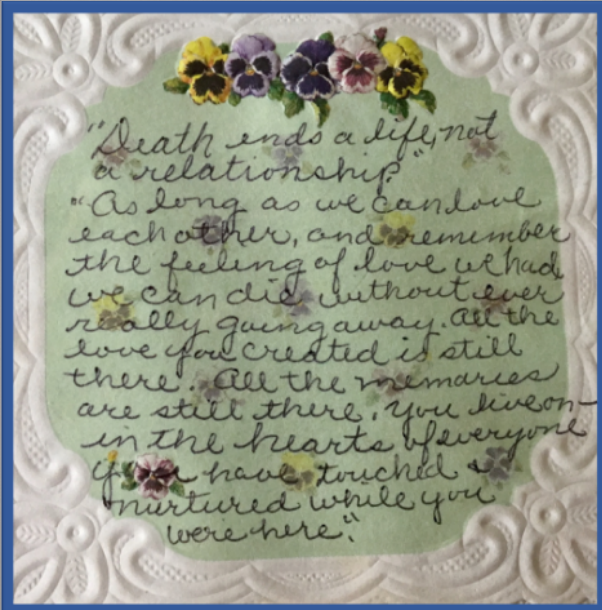 "Death ends a life, not
a relationship."
"As long as we can love
each other, and remember
the feeling of love we had,
we can die without ever
really going away. All the
love you created is still
there. All the memories
are still there. You live on—
in the hearts of everyone
you have touched &
nurtured while you
were here."